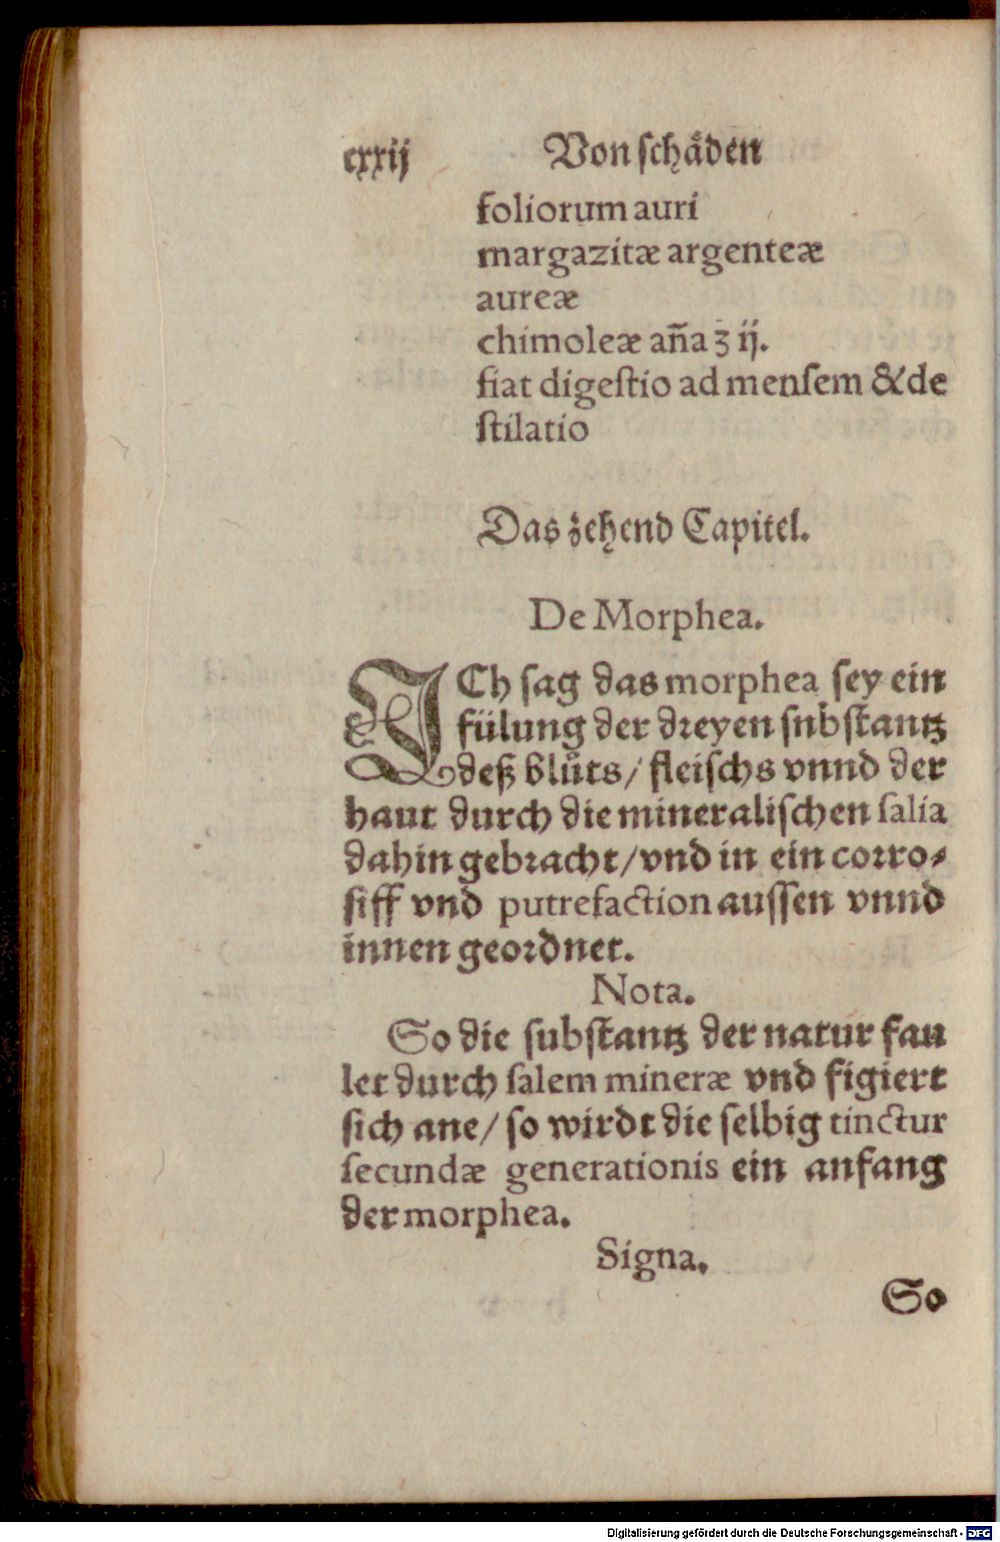 cxxij Von schäden
foliorum auri
margazitæ argenteæ
aureæ
chimoleæ añaʒ ij.
fiat digestio ad mensem & de
stilatio
Das zehend Capitel.
De Morphea.
ICh sag das morphea sey ein
fülung der dreyen snbstantz
deß blůts/ fleischs vnnd der
haut durch die mineralischen salia
dahin gebracht/vnd in ein corro⸗
siff vnd putrefaction aussen vnnd
innen geordnet.
Nota.
So die substantz der natur fau
let durch salem mineræ vnd figiert
sich ane/ so wirdt die selbig tinctur
secundæ generationis ein anfang
der morphea.
Signa.
So
Digitalisierung gefördert durch die Deutsche Forschungsgemeinschaft - DFG